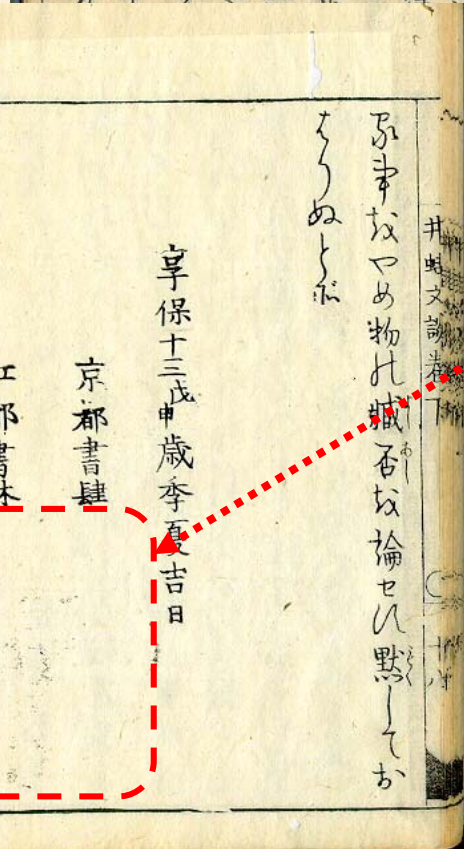 井蛙文談巻下 十八
をやめ物の臧否を論せす黙してお
はりぬとぞ
享保十三戊申歳季夏吉日
京都書肆
江都書林